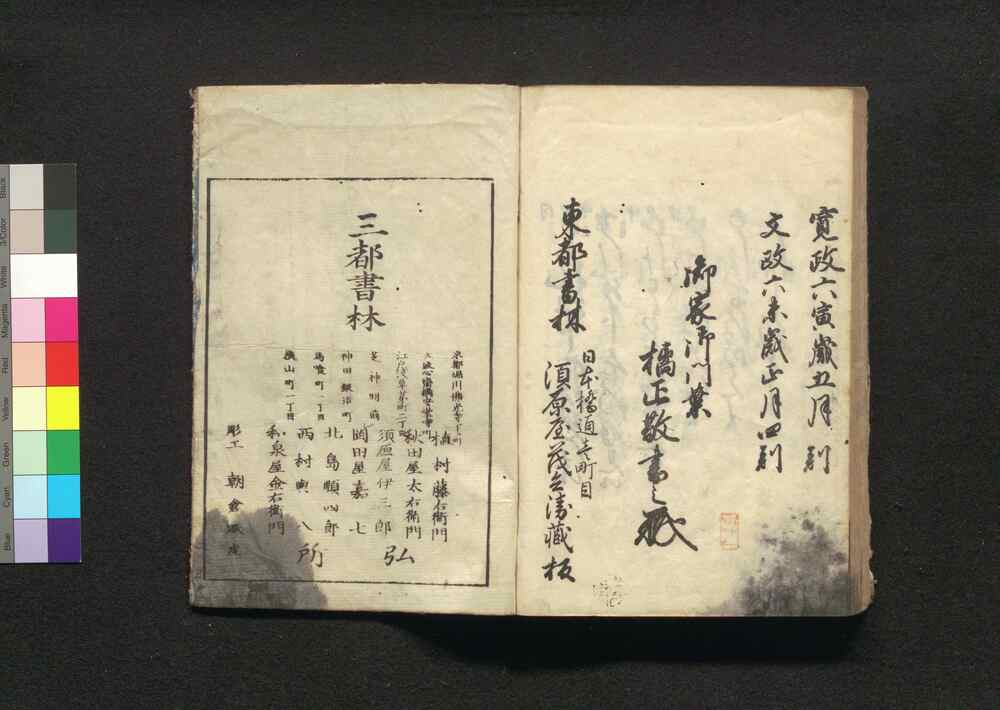 寛政六寅歳五月 刻
文政六未歳正月四刻
御家御門葉
橘正敬書之
東都書林
日本橋通壱町目
須原屋茂兵衛蔵板
三都書林
京都堀川
植村藤右衛門
秋田屋太右衛門
江戸浅草茅町二丁目
須原屋伊三郎
芝神明前
岡田屋嘉七
神田鍛冶町
北島順四郎
馬喰町一丁目
西村與八
横山町一丁目
和泉屋金右衛門
弘所
彫工 朝倉
Black
3/Color
White
Magenta
Red
Yellow
Green
Cyan
Blue